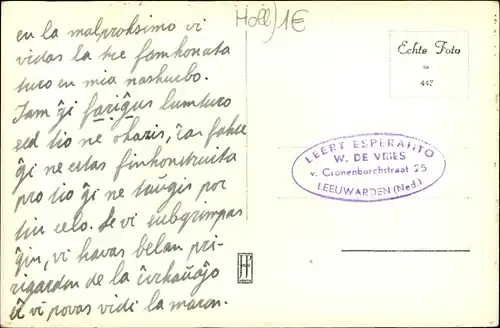 en la malproksimo vi
vidas la tre famkonata
turo en mia naskurbo.
Iam ĝi fariĝus lumturo
sed tio ne okazis, ĉar fakte
ĝi ne estas finkonstruita
pro tio ĝi ne taŭgis por
tiu celo. Se vi subgrimpas
ĝin, vi havas belan pri-
rigardon de la ĉirkaŭaĵo
eĉ vi povas vidi la maron.
Holl) 1€
Echte Foto
447
LEERT ESPERANTO
W. DE VRIES
v. Cronenborchstraat 25
LEEUWARDEN (Ned.)